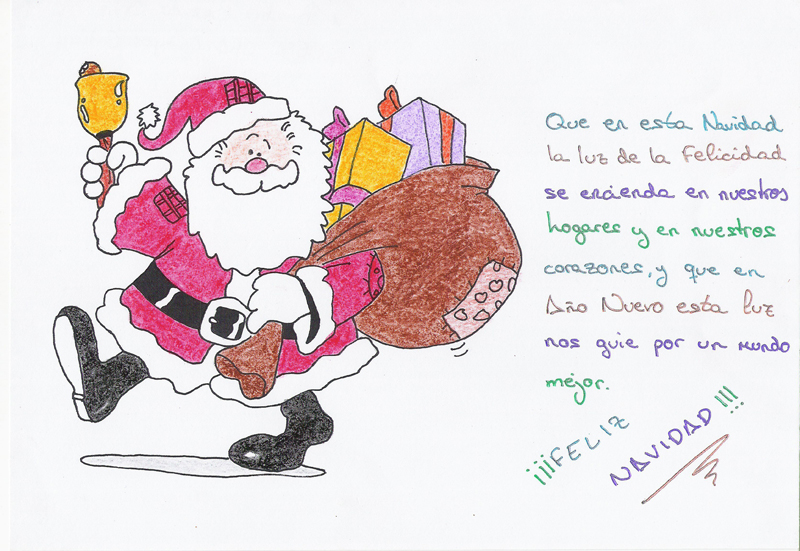 Que en esta Navidad
la luz de la Felicidad
se encienda en nuestros
hogares y en nuestros
corazones, y que en
Año Nuevo esta luz
nos guie por un mundo
mejor.
¡¡¡FELIZ
NAVIDAD!!!